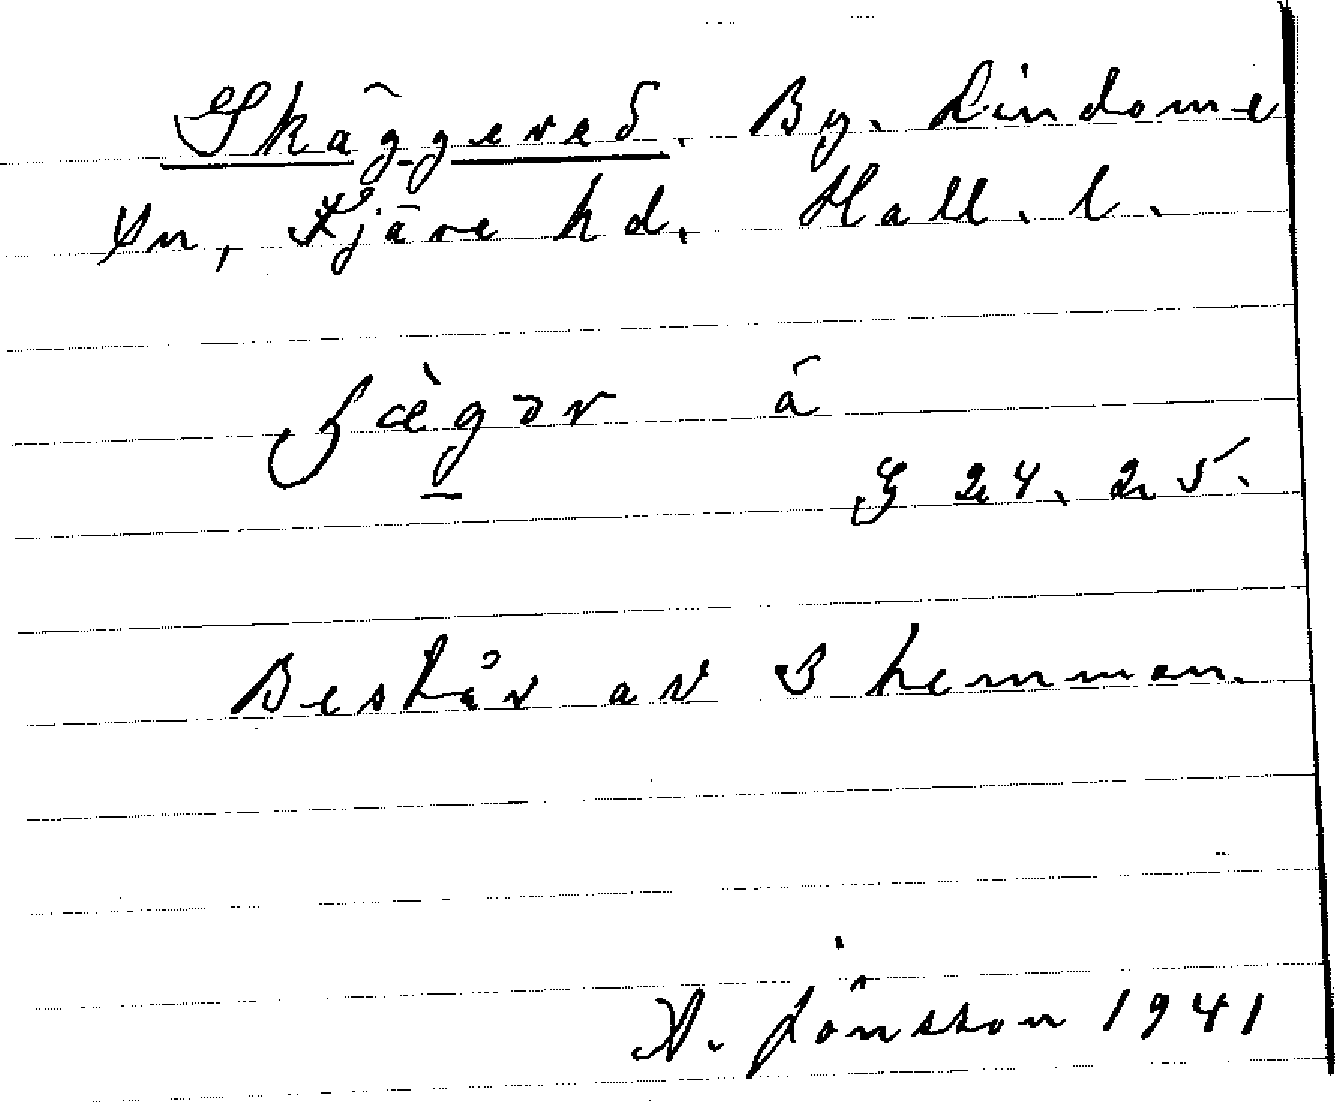 Skäggered. By. Lindome
sn, Fjäre hd. Hall. l.
ʃæ̀gər å
§ 24. 25.
Består av 3 hemman.
A. Jönsson 1941